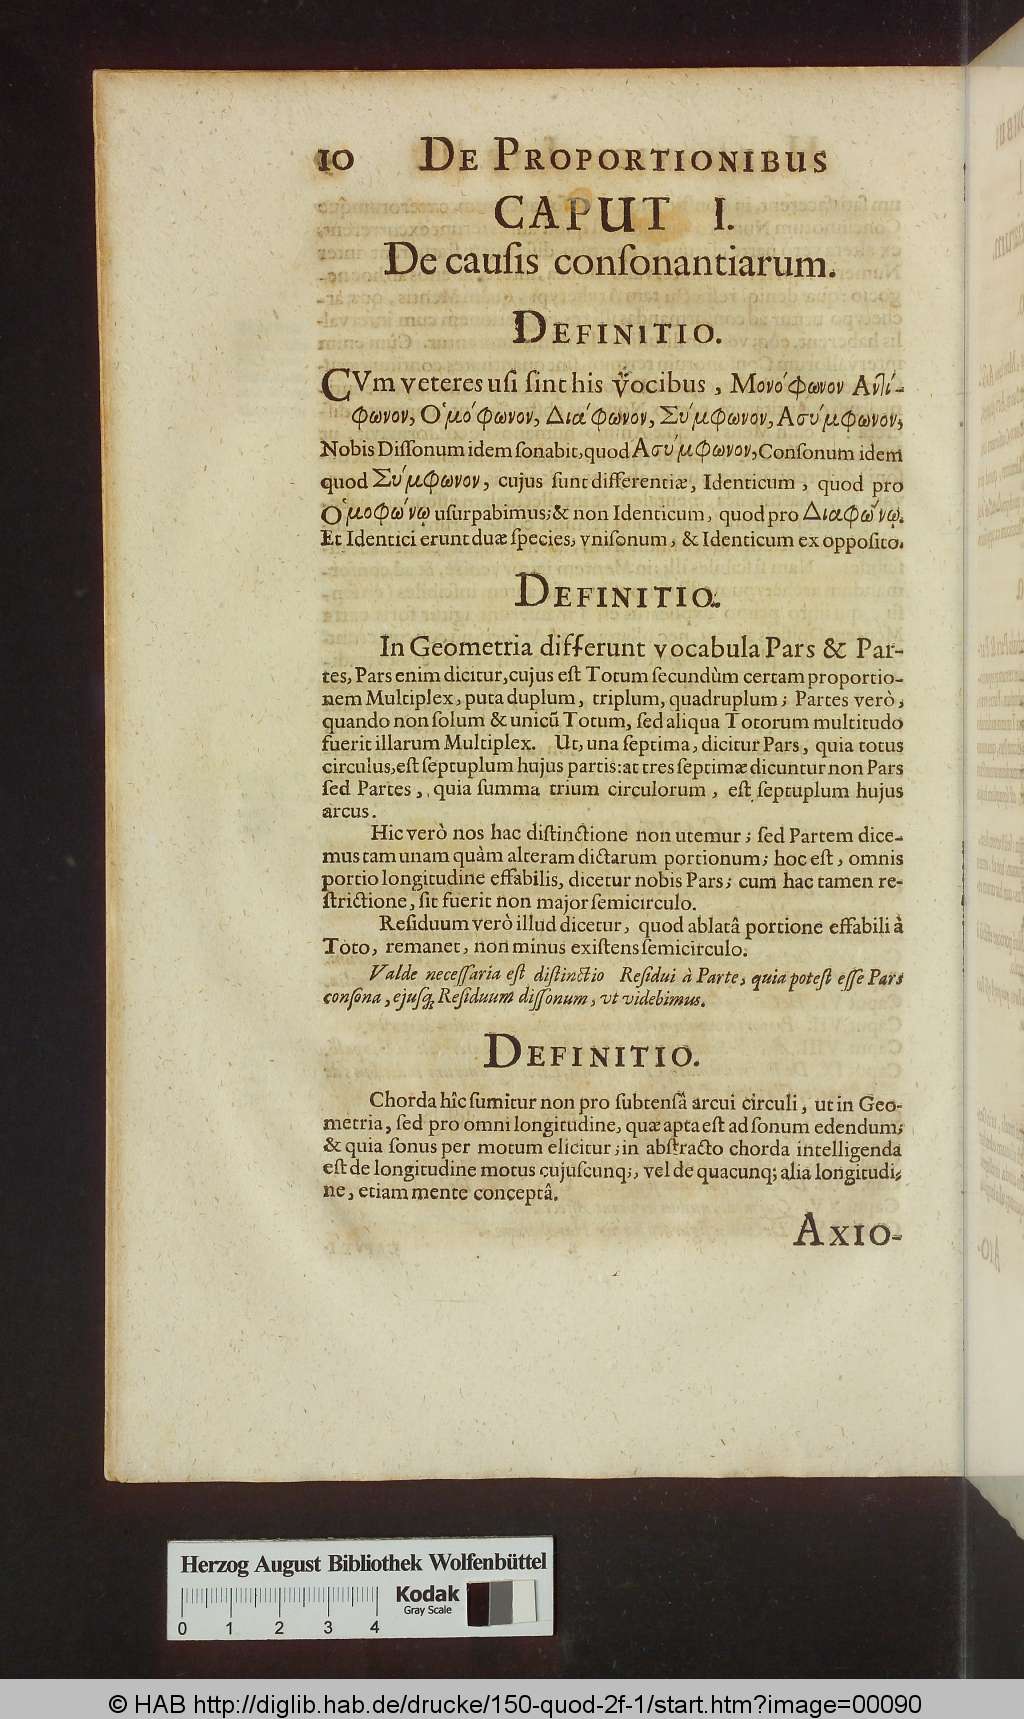 10 DE PROPORTIONIBUS
CAPUT I.
De cauſis conſonantiarum.
DEFINITIO.
CVm veteres uſi ſint his vocibus, Μονόφωνον Ἀντί-
φωνον, Ὁμόφωνον, Διάφωνον, Σύμφωνον, Ἀσύμφωνον,
Nobis Diſſonum idem ſonabit, quod Ἀσύμφωνον, Conſonum idem
quod Σύμφωνον, cujus ſunt differentiæ, Identicum, quod pro
Ὁμοφώνῳ uſurpabimus; & non Identicum, quod pro Διαφώνῳ.
Et Identici erunt duæ ſpecies, vniſonum, & Identicum ex oppoſito.
DEFINITIO.
In Geometria differunt vocabula Pars & Par-
tes, Pars enim dicitur, cujus eſt Totum ſecundùm certam proportio-
nem Multiplex, puta duplum, triplum, quadruplum; Partes verò,
quando non ſolum & unicũ Totum, ſed aliqua Totorum multitudo
fuerit illarum Multiplex. Ut, una ſeptima, dicitur Pars, quia totus
circulus, eſt ſeptuplum hujus partis: at tres ſeptimæ dicuntur non Pars
ſed Partes, quia ſumma trium circulorum, eſt ſeptuplum hujus
arcus.
Hic verò nos hac diſtinctione non utemur; ſed Partem dice-
mus tam unam quàm alteram dictarum portionum; hoc eſt, omnis
portio longitudine effabilis, dicetur nobis Pars; cum hac tamen re-
ſtrictione, ſit fuerit non major ſemicirculo.
Reſiduum verò illud dicetur, quod ablatâ portione effabili à
Toto, remanet, non minus exiſtens ſemicirculo.
Valde neceſſaria eſt diſtinctio Reſidui à Parte, quia poteſt eſſe Pars
conſona, ejuſq; Reſiduum diſſonum, vt videbimus.
DEFINITIO.
Chorda hîc ſumitur non pro ſubtensâ arcui circuli, ut in Geo-
metria, ſed pro omni longitudine, quæ apta eſt ad ſonum edendum;
& quia ſonus per motum elicitur; in abſtracto chorda intelligenda
eſt de longitudine motus cujuſcunq;, vel de quacunq; alia longitudi-
ne, etiam mente conceptâ.
AXIO-
Herzog August Bibliothek Wolfenbüttel
Kodak
Gray Scale
0 1 2 3 4
© HAB http://diglib.hab.de/drucke/150-quod-2f-1/start.htm?image=00090